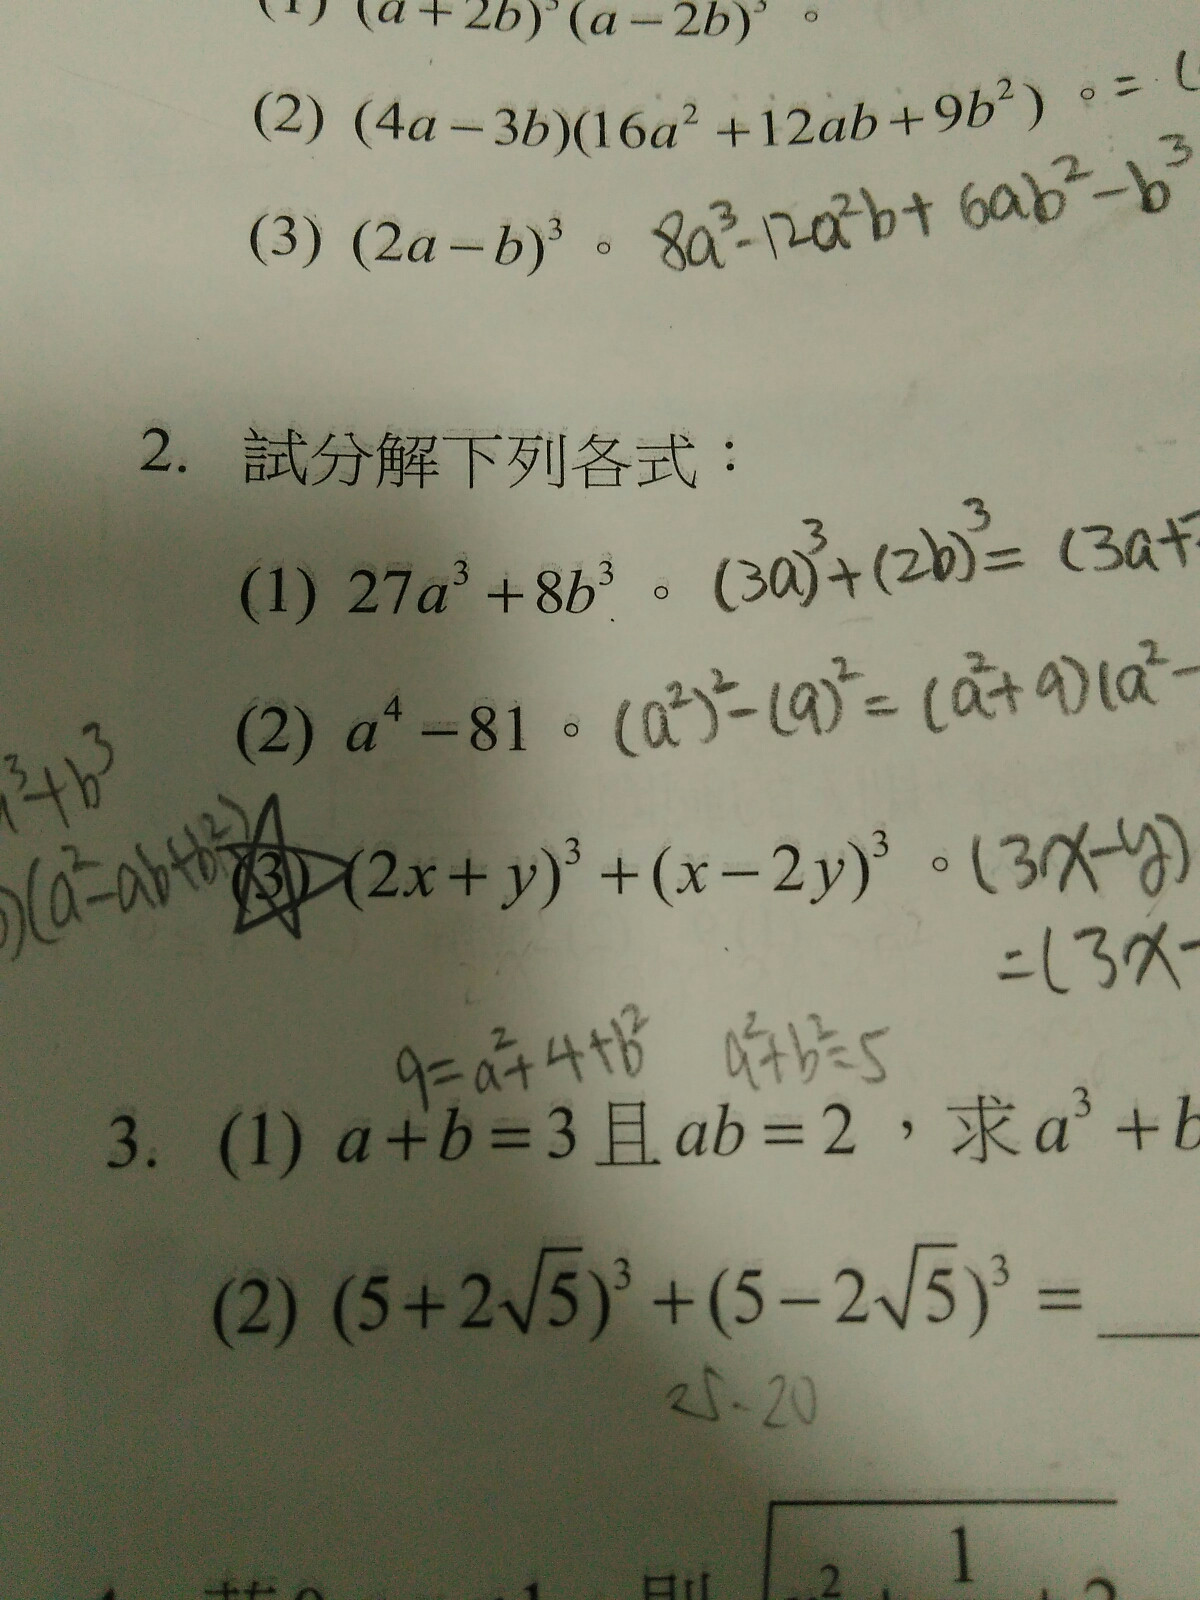 (1) (a+2b)³(a−2b)³。
(2) (4a−3b)(16a²+12ab+9b²)。= (
(3) (2a−b)³。 8a³-12a²b+6ab²-b³
2. 試分解下列各式：
(1) 27a³+8b³。 (3a)³+(2b)³= (3a+
(2) a⁴−81。 (a²)²-(9)²= (a²+9)(a²-
a³+b³
)(a²-ab+b²)
(3) (2x+y)³+(x−2y)³。(3x-y)
=(3x-
9=a²+4+b² a²+b²=5
3. (1) a+b=3且ab=2，求a³+b
(2) (5+2√5)³+(5−2√5)³=
25-20
1